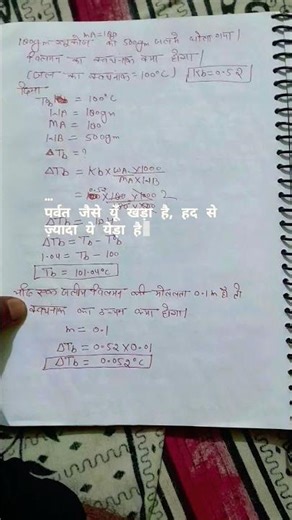 MA = 180
180gm ग्लूकोज को 500gm जल में घोला गया।
विलयन का क्वथनांक क्या होगा।
(जल का क्वथनांक = 100°C) Kb = 0.52
दिया
Tb = 100°C
WA = 180gm
MA = 180
WB = 500gm
ΔTb = ?
ΔTb = Kb × WA × 1000
MA × WB
= 0.52 × 180 × 1000 2
...
पर्वत जैसे यूँ खड़ा है, हद से
ज़्यादा ये येड़ा है
ΔTb = Tb - T°b
1.04 = Tb - 100
Tb = 101.04°C
जलीय विलयन की मोललता 0.1 m है तो
क्वथनांक का उन्नयन क्या होगा।
m = 0.1
ΔTb = 0.52 × 0.01
ΔTb = 0.052°C